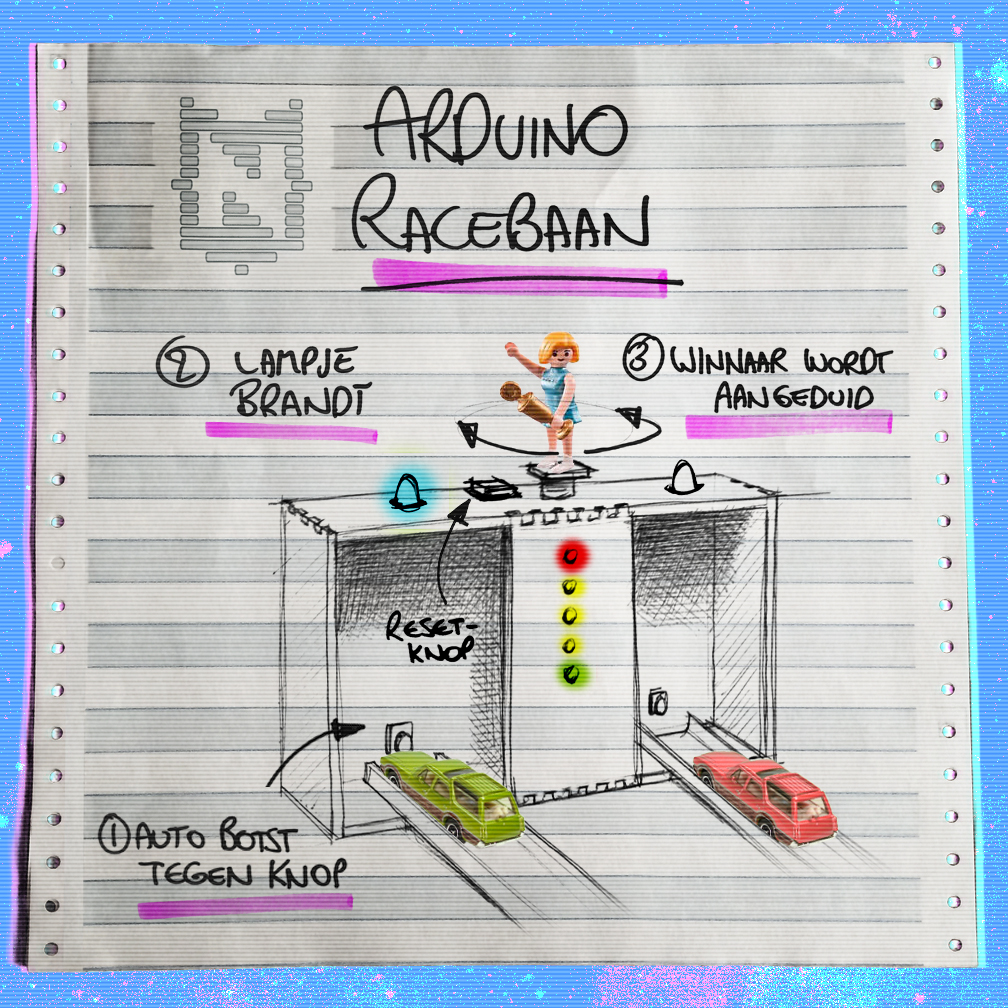 ARDUINO
RACEBAAN
2 LAMPJE
BRANDT
3 WINNAAR WORDT
AANGEDUID
RESET-
KNOP
1 AUTO BOTST
TEGEN KNOP